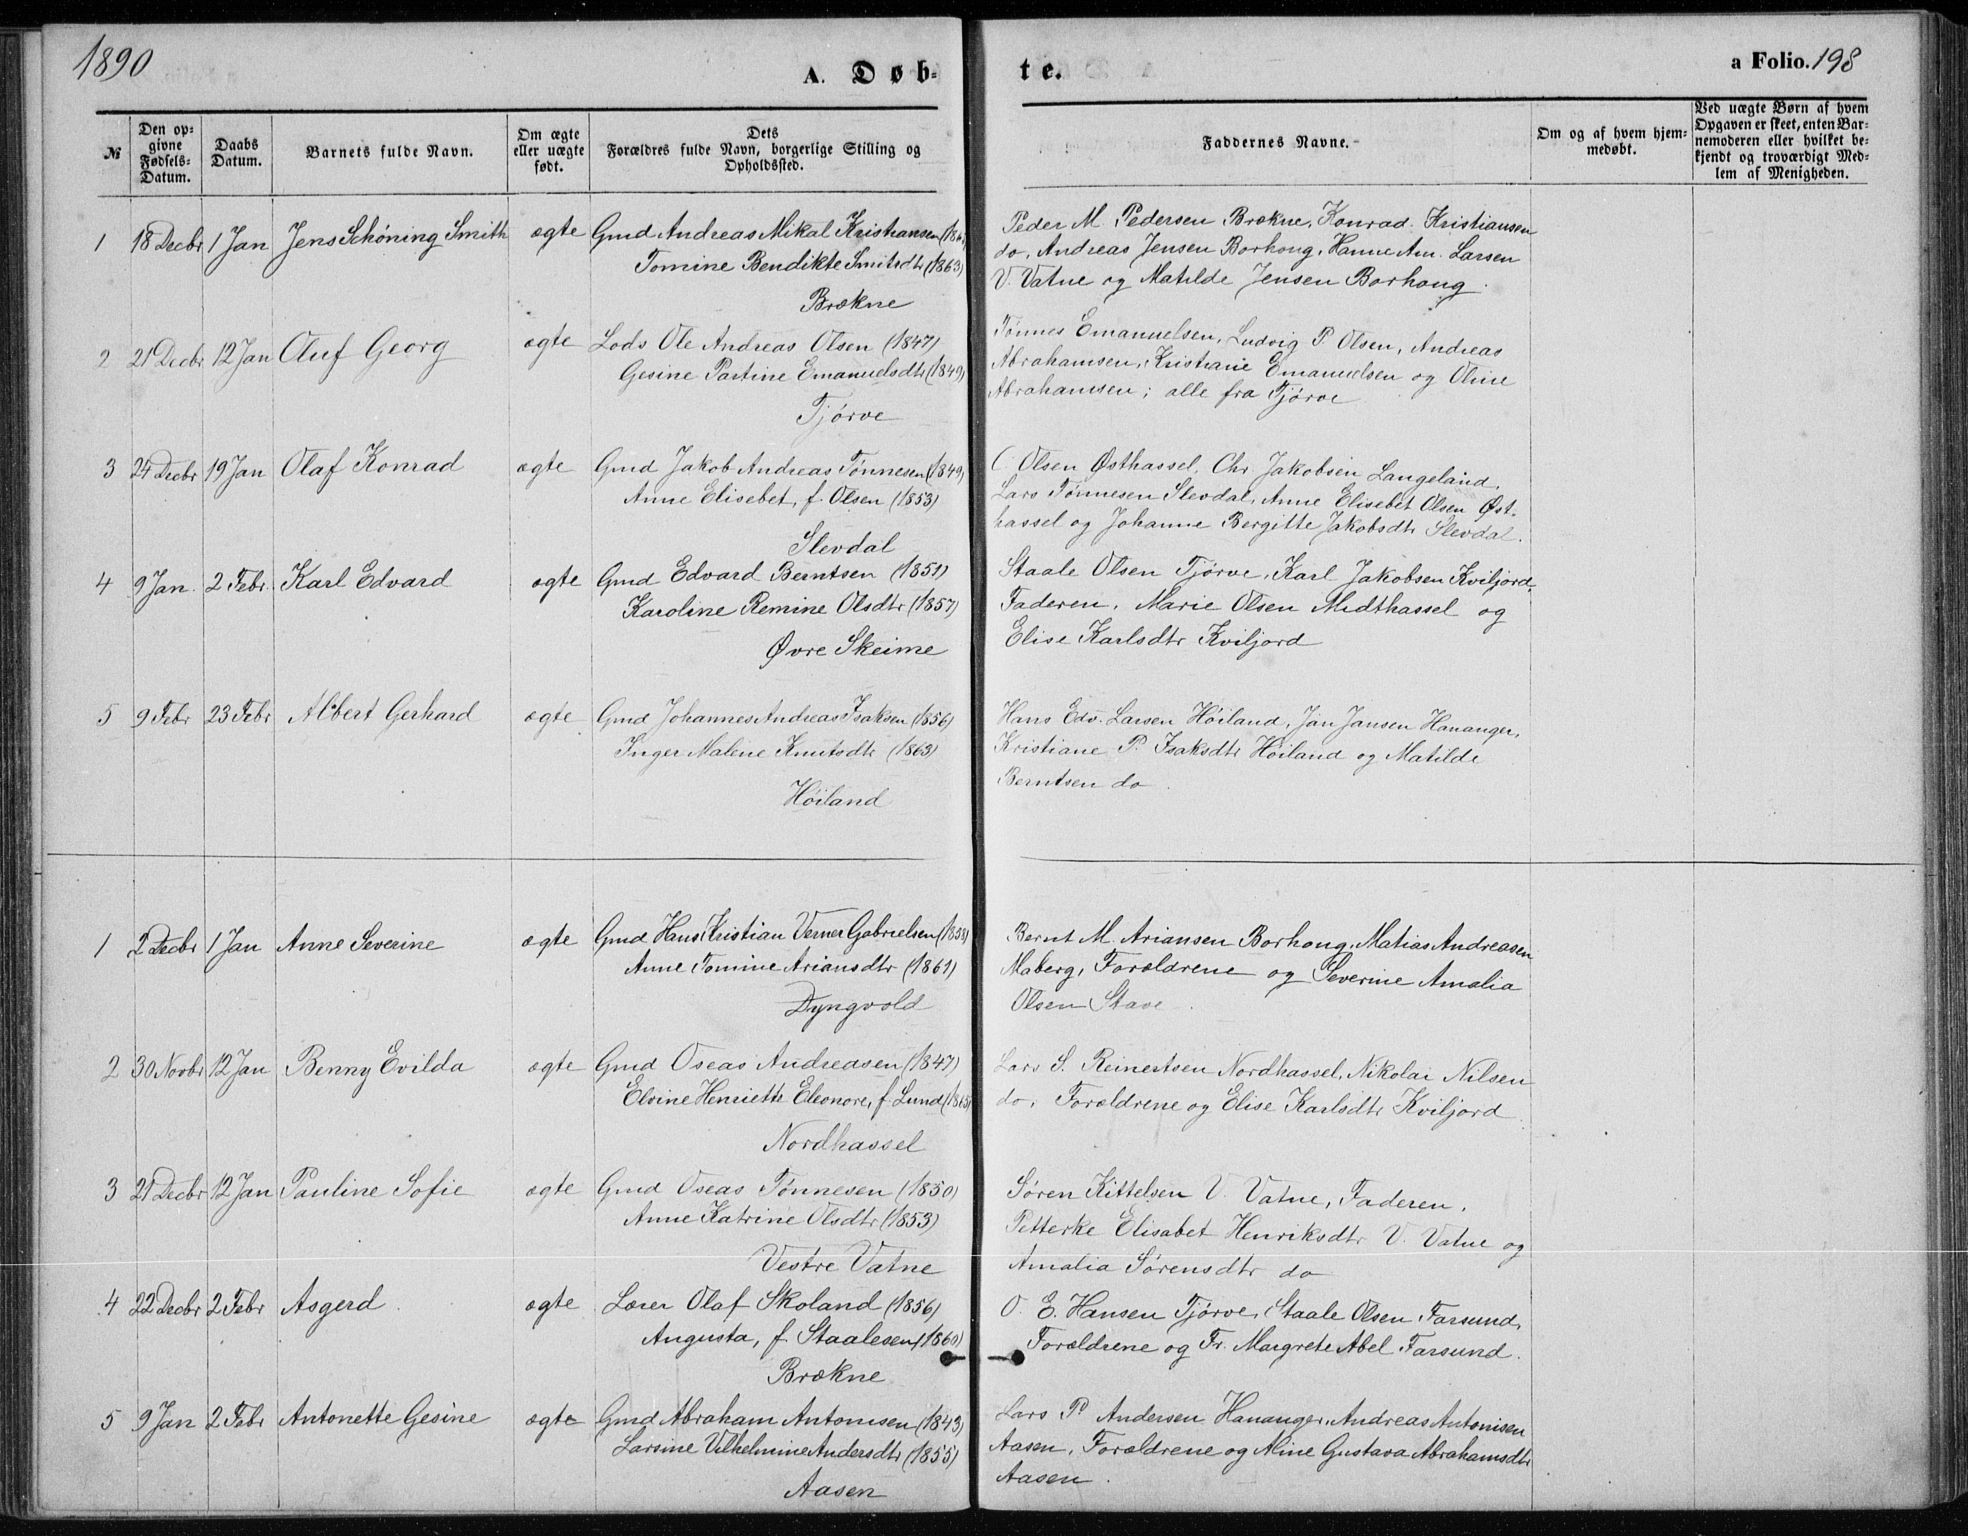 1890
A. Døb-
te.
a Folio. 198
№
Den op-
givne
Fødsels-
Datum.
Daabs
Datum.
Barnets fulde Navn.
Om ægte
eller uægte
født.
Dets
Forældres fulde Navn, borgerlige Stilling og
Opholdssted.
Faddernes Navne.
Om og af hvem hjem-
medøbt.
Ved uægte Børn af hvem
Opgaven er skeet, enten Bar-
nemoderen eller hvilket be-
kjendt og troværdigt Med-
lem af Menigheden.
1 18 Decbr 1 Jan Jens Schöning Smith ægte Gmd Andreas Mikal Kristiansen
Tomine Bendikte Smitsdtr (1863)
Brækne
Peder M Pedersen Brækne, Konrad Kristiansen
do, Andreas Jensen Borhoug, Hanne Am. Larsen
V. Vatne og Matilde Jensen Borhoug.
2 21 Decbr 12 Jan Oluf Georg ægte Lods Ole Andreas Olsen (1847)
Gesine Partine Emanuelsdtr (1849)
Tjörve
Tönnes Emanuelsen, Ludvig P. Olsen, Andreas
Abrahamsen, Kristiane Emanuelsen og Oline
Abrahamsen; alle fra Tjörve
3 24 Decbr 19 Jan Olaf Konrad ægte Gmd Jakob Andreas Tönnesen (1849)
Anne Elisebet, f. Olsen (1853)
Slevdal
C. Olsen Østhassel, Chr Jakobsen Langeland,
Lars Tönnesen Slevdal, Anne Elisebet Olsen Øst-
hassel og Johanne Bergitte Jakobsdtr Slevdal.
4 9 Jan. 2 Febr. Karl Edvard ægte Gmd Edvard Berntsen (1851)
Karoline Remine Olsdtr (1857)
Øvre Skeime
Staale Olsen Tjörve, Karl Jakobsen Kviljord,
Faderen, Marie Olsen Midthassel og
Elise Karlsdtr Kviljord
5 9 Febr 23 Febr Albert Gerhard ægte Gmd Johannes Andreas Isaksen (1856)
Inger Malene Knutsdtr (1863)
Höiland
Hans Edv. Larsen Höiland, Jan Jansen Hananger,
Kristiane P. Isaksdtr Höiland og Matilde
Berntsen do.
1 2 Decbr 1 Jan Anne Severine ægte Gmd Hans Kristian Verner Gabrielsen
Anne Tomine Ariansdtr (1861)
Dyngvold
Bernt M. Ariansen Borhoug, Matias Andreasen
Maberg, Forældrene og Severine Amalia
Olsen Stave.
2 30 Novbr 12 Jan Benny Evilda ægte Gmd Oseas Andreasen (1847)
Elvine Henriette Eleonore, f. Lund
Nordhassel
Lars S. Reinertsen Nordhassel, Nikolai Nilsen
do, Forældrene og Elise Karlsdtr Kviljord
3 21 Decbr 12 Jan Pauline Sofie ægte Gmd Oseas Tönnesen (1850)
Anne Katrine Olsdtr (1853)
Vestre Vatne
Sören Kittelsen V. Vatne, Faderen,
Petterke Elisabet Henriksdtr V. Vatne og
Amalia Sörensdtr do
4 22 Decbr 2 Febr Asgerd. ægte Lærer Olaf Skoland (1856)
Augusta, f. Staalesen (1860)
Brækne
O. E. Hansen Tjörve, Staale Olsen Farsund,
Forældrene og Fr. Margrete Abel Farsund.
5 9 Jan 2 Febr Antonette Gesine ægte Gmd Abraham Antonisen (1843)
Larsine Vilhelmine Andersdtr (1855)
Aasen
Lars P. Andersen Hananger, Andreas Antonisen
Aasen, Forældrene og Aline Gustava Abrahamsdtr
Aasen.